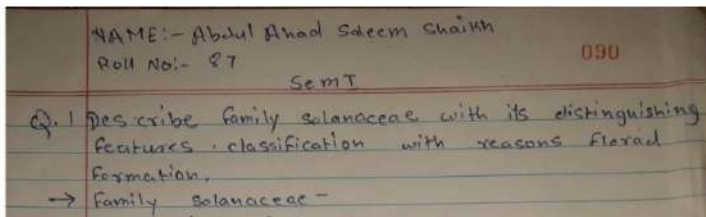 NAME:- Abdul Ahad Saleem Shaikh
Roll No:- 87
090
Sem I
Q.1 Describe family solanaceae with its distinguishing
features. classification with reasons florad
formation.
→ Family Solanaceae -